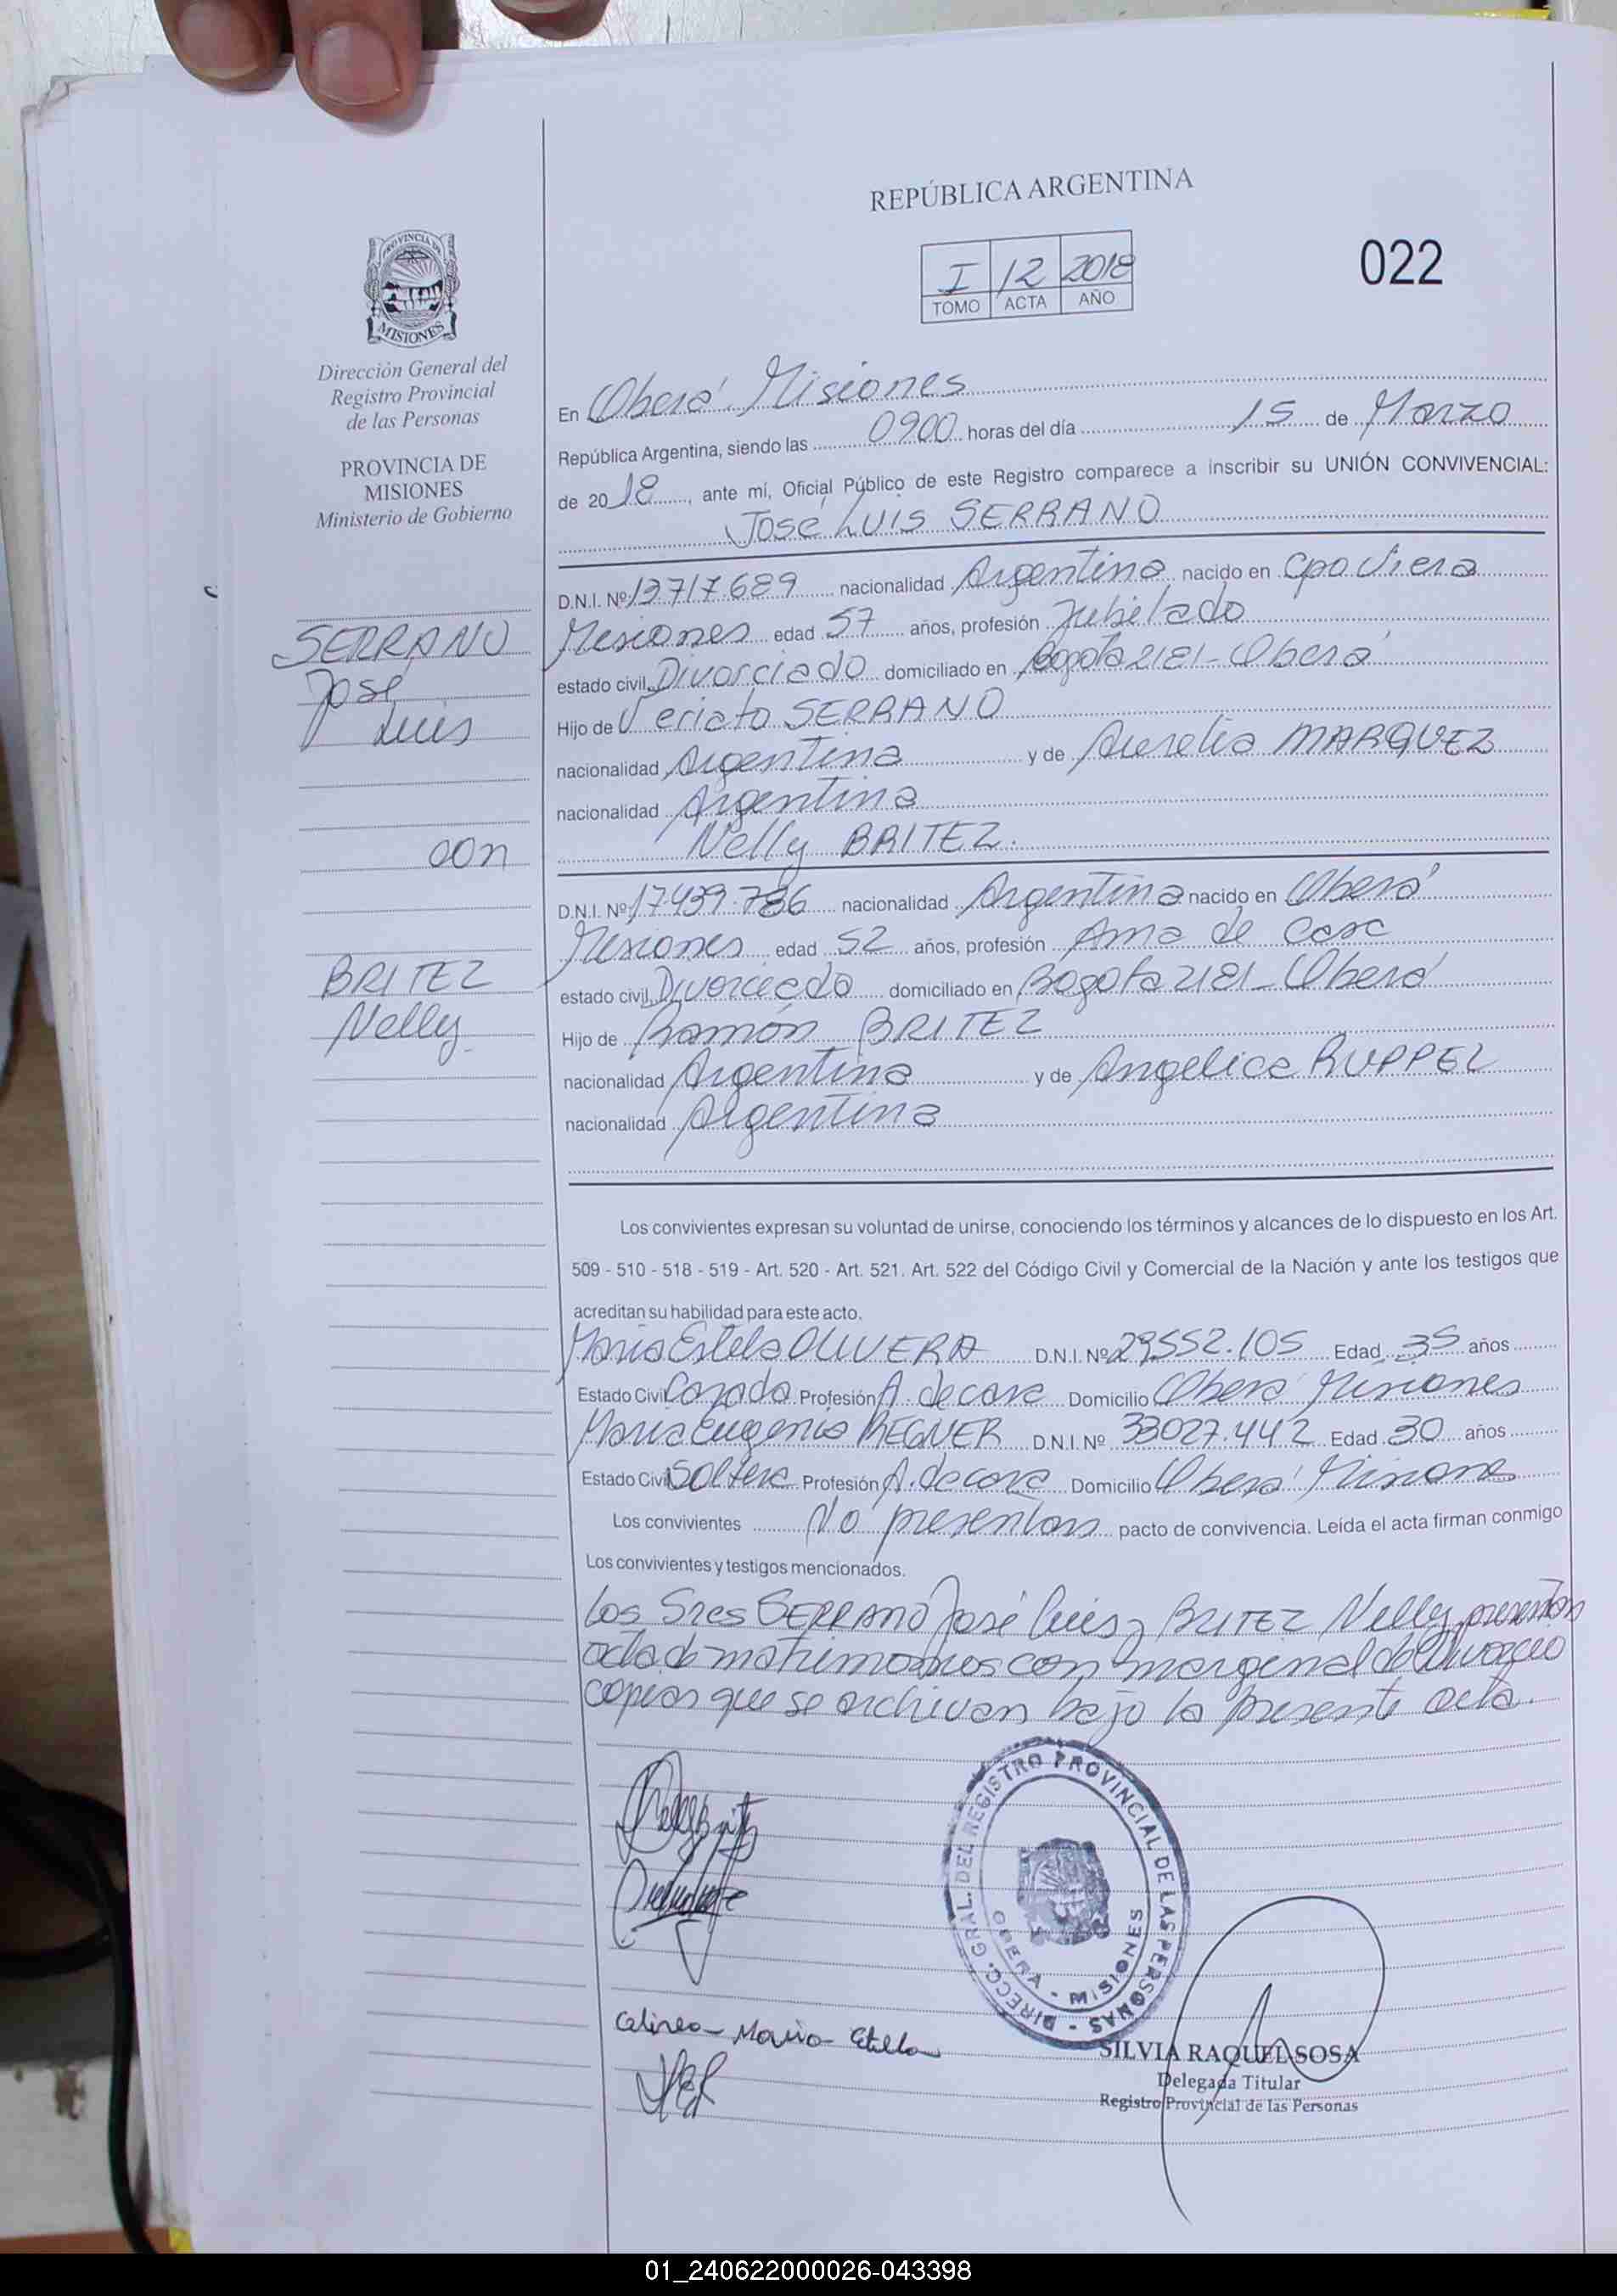 REPÚBLICA ARGENTINA
I 12 2018
TOMO ACTA AÑO
022
PROVINCIA DE
MISIONES
Dirección General del
Registro Provincial
de las Personas
PROVINCIA DE
MISIONES
Ministerio de Gobierno
SERRANO
José
Luis
con
BRITEZ
Nelly
En Oberá Misiones
República Argentina, siendo las 0900 horas del día 15 de Marzo
de 2018, ante mí, Oficial Público de este Registro comparece a inscribir su UNIÓN CONVIVENCIAL:
José Luis SERRANO
D.N.I. Nº 13.717.689 nacionalidad Argentina nacido en Cpo Viera
Misiones edad 57 años, profesión Jubilado
estado civil Divorciado domiciliado en Bogota 2181 - Oberá
Hijo de Veriato SERRANO
nacionalidad Argentina y de Aurelia MARQUEZ
nacionalidad Argentina
Nelly BRITEZ.
D.N.I. Nº 17439.786 nacionalidad Argentina nacido en Oberá
Misiones edad 52 años, profesión Ama de Casa
estado civil Divorciada domiciliado en Bogota 2181 - Oberá
Hijo de Ramón BRITEZ
nacionalidad Argentina y de Angelica RUPPEL
nacionalidad Argentina
Los convivientes expresan su voluntad de unirse, conociendo los términos y alcances de lo dispuesto en los Art.
509 - 510 - 518 - 519 - Art. 520 - Art. 521. Art. 522 del Código Civil y Comercial de la Nación y ante los testigos que
acreditan su habilidad para este acto.
Maria Estela OLIVERA D.N.I. Nº 29.552.105 Edad 35 años
Estado Civil Casada Profesión A. de casa Domicilio Oberá Misiones
Maria Eugenia REGNER D.N.I. Nº 33027.442 Edad 30 años
Estado Civil Soltera Profesión A. de casa Domicilio Oberá Misiones
Los convivientes No presentan pacto de convivencia. Leída el acta firman conmigo
Los convivientes y testigos mencionados.
Los Sres SERRANO José Luis y BRITEZ Nelly presentan
acta de matrimonios con marginal de Divorcio
copias que se archivan bajo la presente acta.
DIRECC. GRAL. DEL REGISTRO PROVINCIAL DE LAS PERSONAS
OBERA - MISIONES
Maria Estella
SILVIA RAQUEL SOSA
Delegada Titular
Registro Provincial de las Personas
01_240622000026-043398